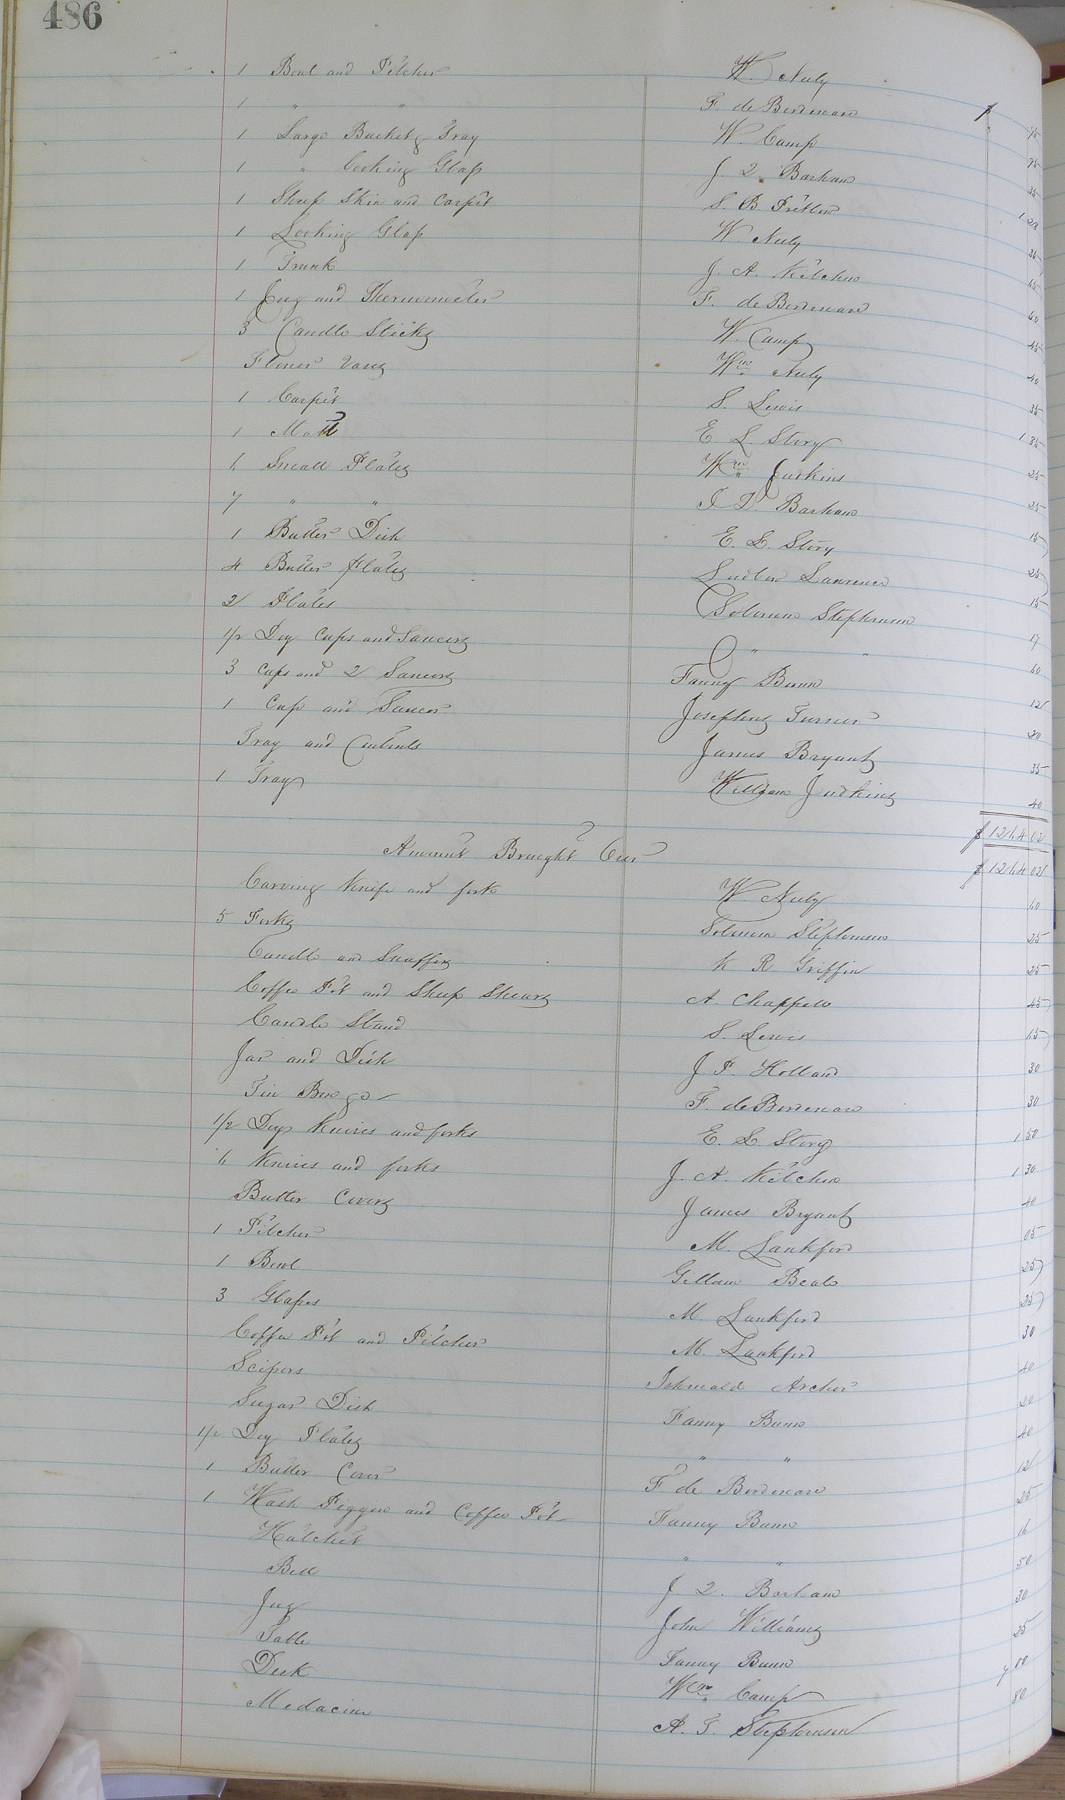 486
1 Bowl and Pitcher W. Neely
1 " " F. de Bordenave $ 75
1 Large Bucket & Tray W. Camp 25
1 " Looking Glass J. Q. Barham 35
1 Sheep Skin and Carpet S. B. Pretlow 1 20
1 Looking Glass W. Neely 35
1 Trunk J. A. Kitchen 45
1 Jug and Thermometer F. de Bordenave 40
3 Candle Sticks W. Camp 45
Flower Vases Wm Neely 40
1 Carpet S. Lewis 35
1 Matt E. L. Story 1 35
6 Small Plates Wm Judkins 25
7 " " Barham 25
1 Butter Dish E. L. Story 15
4 Butter Plates Lawrence 25
2 Plates Solomon Stephenson 15
1/2 Doz Cups and Saucers " " 17
3 Cups and 2 Saucers Fanny Bunn 60
1 Cup and Saucer Josephus Turner 12
Tray and Contents James Bryant 20
1 Tray William Judkins 35
40
$ 1264 02
Amount Brought Over $ 1264 02
Carving Knife and fork W. Neely
5 Forks Solomon Stephenson 60
Candle and Snuffers R Griffin 25
Coffee Pot and Sheep Shears A. Chappell 25
Candle Stand S. Lewis 45
Jar and Dish J. P. Holland 15
Tin F. de Bordenave 30
1/2 Doz Knives and forks E. L. Story 30
6 Knives and forks J. A. Kitchen 1 50
Butter Covers James Bryant 1 30
1 Pitcher M. Lankford 40
1 Bowl Beale 05
3 Glasses M. Lankford 25
Coffee Pot and Pitcher M. Lankford 25
Scissors Archer 30
Sugar Dish Fanny Bunn 40
1/2 Doz Plates " " 20
1 Butter Cover F de Bordenave 40
1 Wash Piggin and Coffee Pot Fanny Bunn 12
Hatchet " " 25
Bell J. Q. Barham 16
Jug John Williams 50
Table Fanny Bunn 30
Desk Wm Camp 25
Medacine A. T. Stephenson 7 00
80